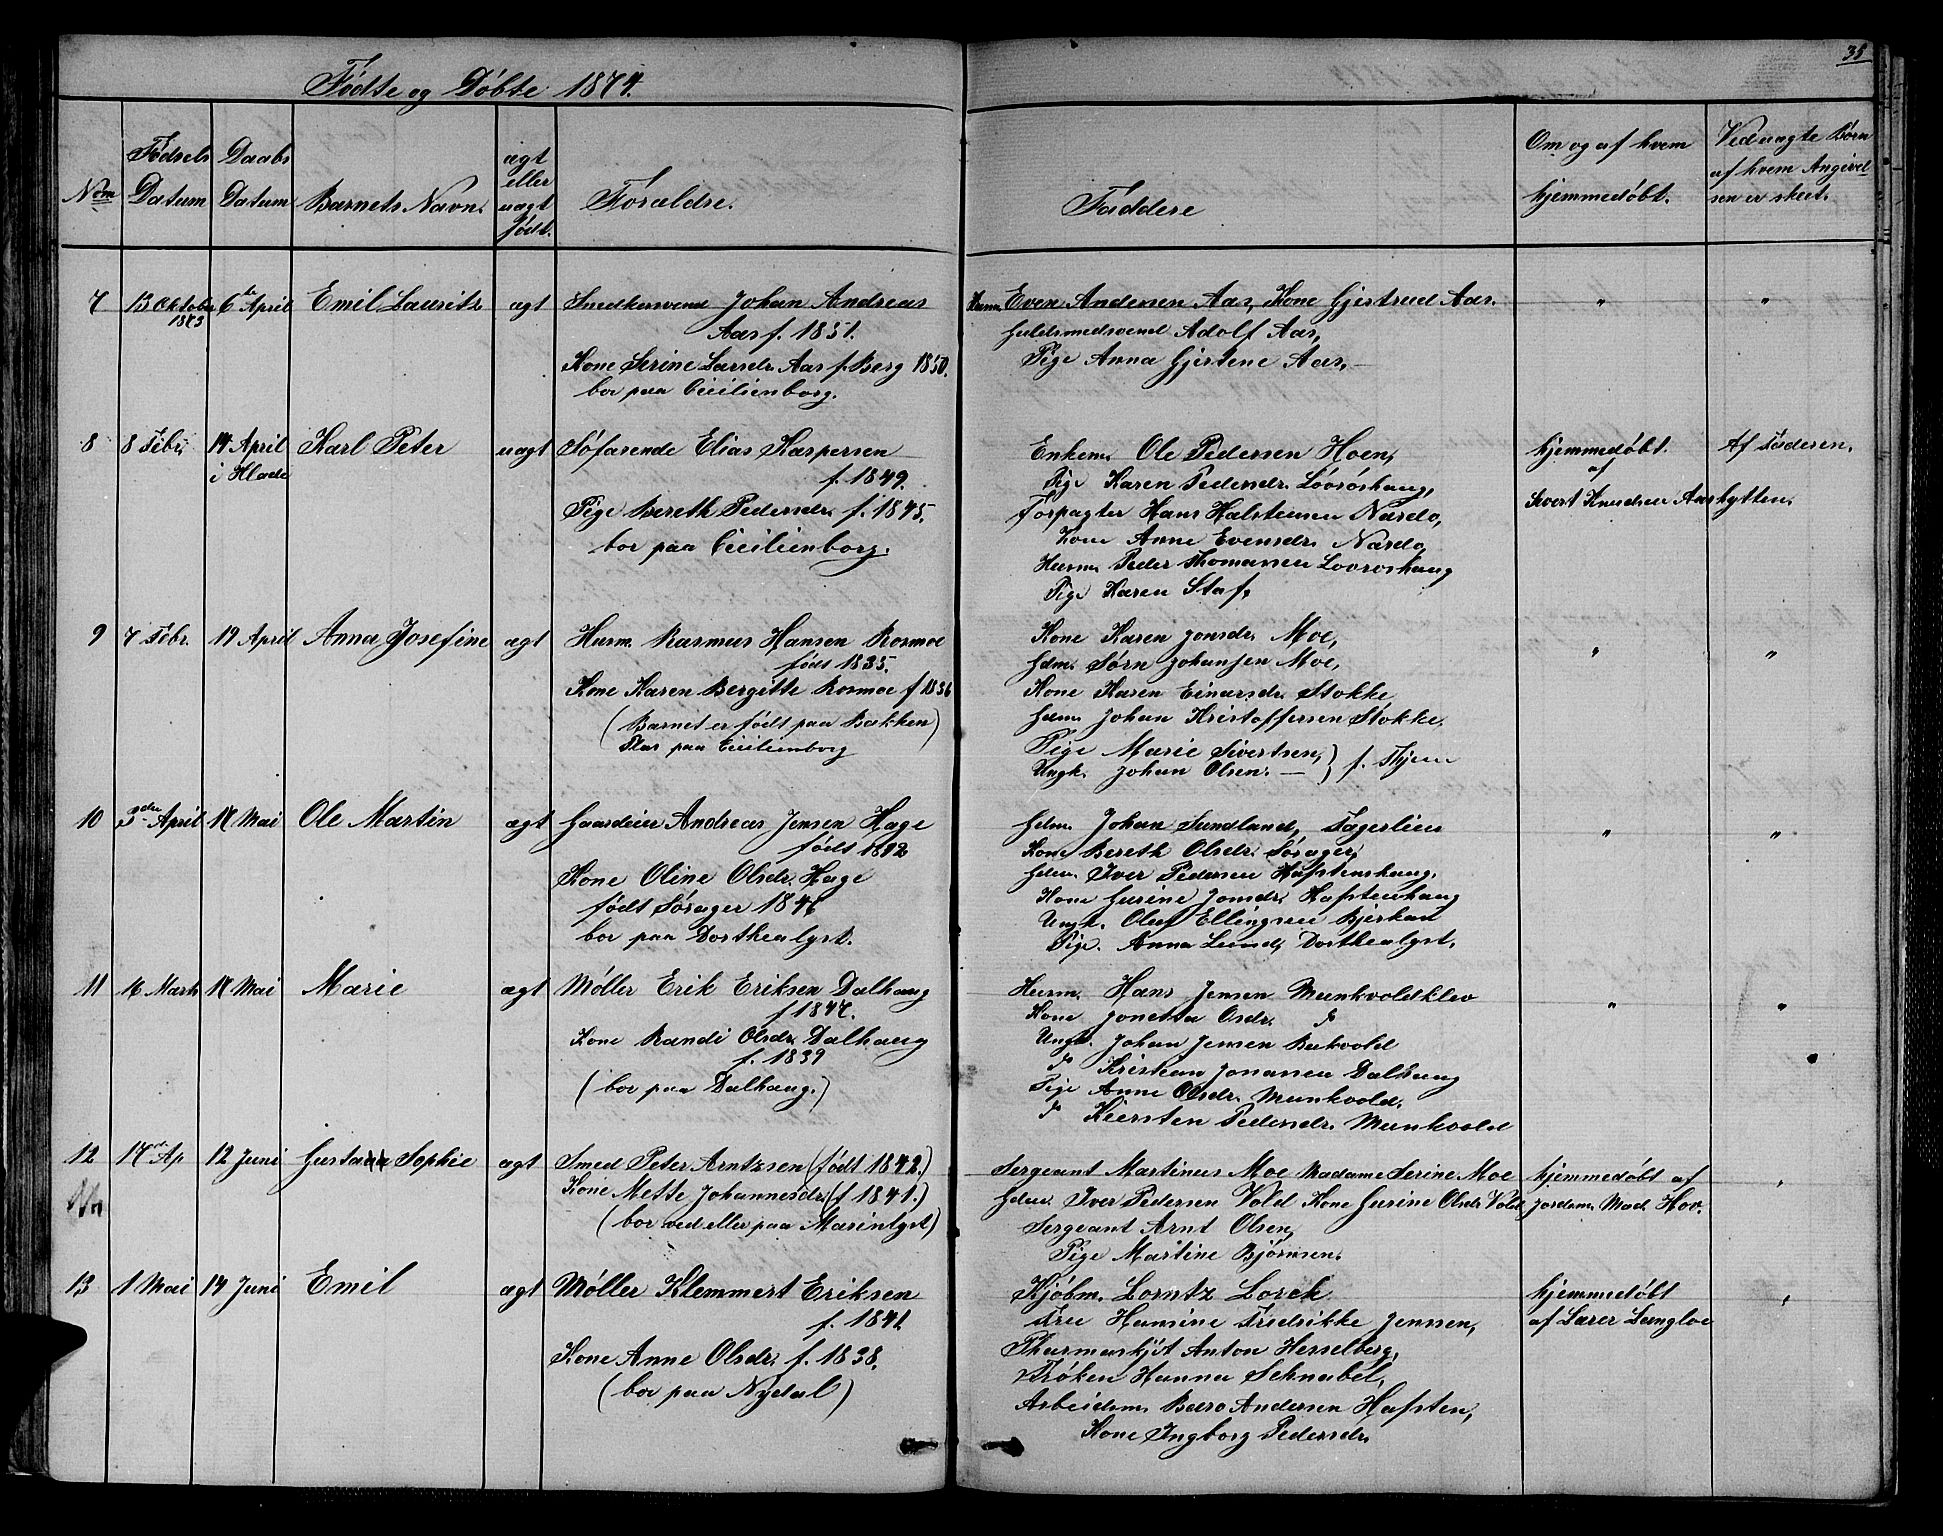 35
Fødte og Døbte 1874.
Num
Fødsels Datum
Daabs Datum
Barnets Navn.
ægt eller uægt født.
Forældre.
Faddere
Om og af hvem hjemmedøbt.
Ved uægte Børn af hvem Angivelsen er skeet.
7 13 Oktober 1873 6te April Emil Lauritz ægt
Snedkersvend Johan Andreas
Aas f. 1851.
Kone Serine Larsdr. Aas f. Berg 1850.
bor paa Cicilienborg.
Huusm. Even Andersen Aas, Kone Gjertrud Aas.
Guldsmedsvend Adolf Aas,
Pige Anna Gjertine Aas,
" "
8 8 Febr. 14 April i Hlade Karl Peter uægt
Søfarende Elias Kaspersen
f. 1849.
Pige Bereth Pedersdr. f. 1845.
bor paa Cicilienborg.
Enkem. Ole Pedersen Hoen,
Pige Karen Pedersdr. Loøroshaug,
Forpagter Hans Halstensen Nardo,
Kone Anne Evensdr. Nardo,
Huusm. Peder Thomassen Looroshaug
Pige Karen Staf,
hjemmedøbt.
af
Sivert Knudsen Aashytten.
Af Faderen.
9 7 Febr. 19 April Anna Josefine ægt
Husm. Rasmus Hansen Rosmoe
født 1835.
Kone Karen Bergitte Rosmoe f 1836
(Barnet er født paa Bakken)
Plas paa Cicilienborg
Kone Karen Jonsdr. Moe,
Gdm. Sørn Johansen Moe,
Kone Karen Einarsdr. Stokke
Gdm. Johan Kristoffersen Stokke,
Pige Marie Sivertsen,
Ungk. Johan Olsen. — } f.
" "
10 3die April 17 Mai Ole Martin ægt
Gaardeier Andreas Jensen Hage
født 1842
Kone Oline Olsdr. Hage
født Sørager 1846
bor paa Dorthealyst.
Gdm. Johan Sundland, Fagerlien
Kone Bereth Olsdr. Sørager,
Gdm. Iver Pedersen Hafstenhaug,
Kone Gurine Jonsdr. Hafstenhaug
Ungk. Oluf Ellingsen Bjerkan
Pige. Anna Lund, Dorthealyst.
" "
11 16 Marts 17 Mai Marie ægt
Møller Erik Eriksen Dalhaug
f 1847.
Kone Randi Olsdr. Dalhaug
f. 1839
(bor paa Dalhaug.)
Husm. Hans Jensen Munkvoldklev
Kone Jonetta Osdr.
Ungk. Johan Jensen Bakvold
Kristian Jonassen Dalhaug
Pige Anne Olsdr. Munkvold,
Kiersten Pedersdr. Munkvold
" "
12 17de Ap 12 Juni Gustava Sophie ægt
Smed Peter Arntzsen (født 1842.)
Kone Mette Johannesdr. (f 1841.)
(bor ved eller paa Marinlyst)
Sergeant Martinus Moe Madame Serine Moe
Gdm. Iver Pedersen Vold Kone Gurine Olsdr. Vold
Sergeant Arnt Olsen,
Pige Martine Bjørnsen.
hjemmedøbt af
Jordem. Mad. Hov.
"
13 1 Mai 14 Juni Emil ægt
Møller Klemmert Eriksen
f. 1841
Kone Anne Olsdr. f. 1838.
(bor paa Nydal)
Kjøbm. Lorntz Lorck
Frue Hansine Fredrikke Jenssen,
Pharmaskjøt Anton Hesselberg,
Frøken Hanna Schnabel,
Arbeidsm. Baro Andersen Hafsten,
Kone Ingborg Pedersdr.
hjemmedøbt
af Lærer Langloe
"